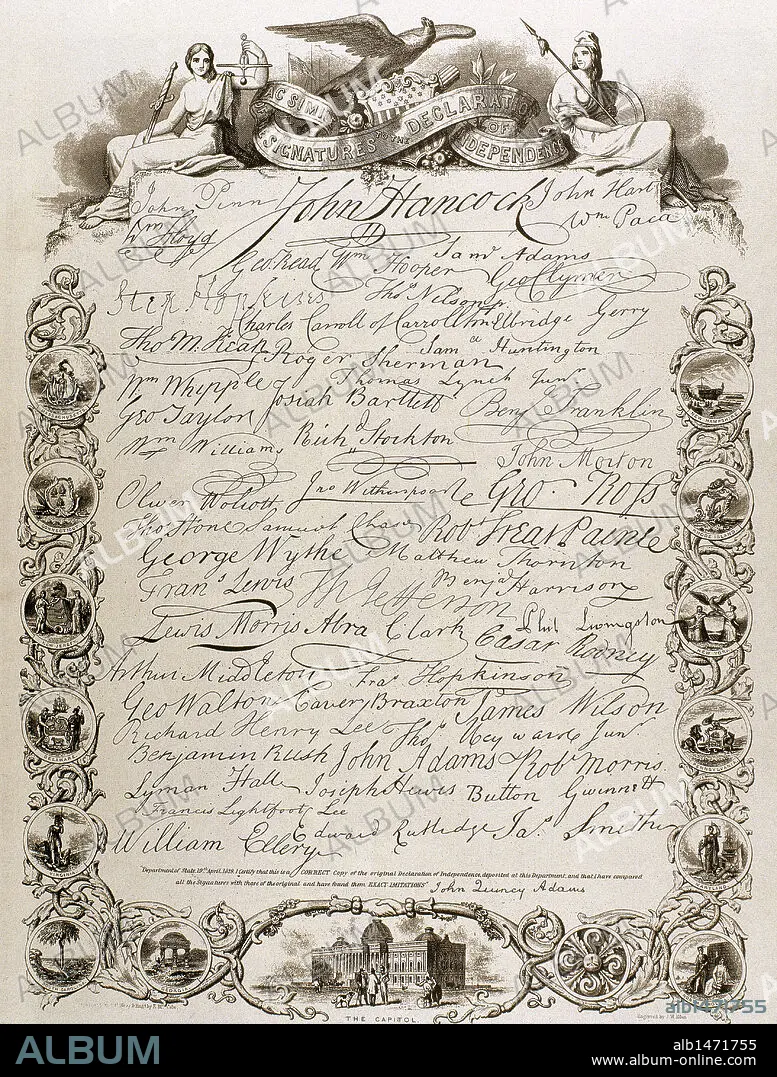 FAC SIMILE
SIGNATURES TO THE DECLARATION OF INDEPENDENCE
John Penn John Hancock John Hart
Wm Floyd Wm Paca
Geo. Read Wm Hooper Saml Adams Geo Clymer
Step. Hopkins Thos Nelson jr.
Charles Carroll of Carrollton Elbridge Gerry
Tho M. Kean Roger Sherman Saml Huntington
Wm Whipple Thomas Lynch Junr
Geo Taylor Josiah Bartlett Benj Franklin
Wm Williams Richd Stockton John Morton
Oliver Wolcott Jno Witherspoon Geo. Ross
Thos Stone Samuel Chase Robt Treat Paine
George Wythe Matthew Thornton
Frans Lewis Th Jefferson Benja Harrison
Lewis Morris Abra Clark Phil Livingston
Cæsar Rodney
Arthur Middleton Fras Hopkinson
Geo Walton Carter Braxton James Wilson
Richard Henry Lee Thos Heyward Junr.
Benjamin Rush John Adams Robt Morris.
Lyman Hall Joseph Hewes Button Gwinnett
Francis Lightfoot Lee
William Ellery Edward Rutledge Jas Smith
"Department of State, 19th April, 1819. I Certify that this is a CORRECT Copy of the original Declaration of Independence, deposited at this Department, and that I have compared
all the Signatures with those of the original and have found them EXACT IMITATIONS" John Quincy Adams
DELAWARE
VIRGINIA
MARYLAND
THE CAPITOL.
ALBUM
alb1471755
ALBUM
alb1471755
www.album-online.com